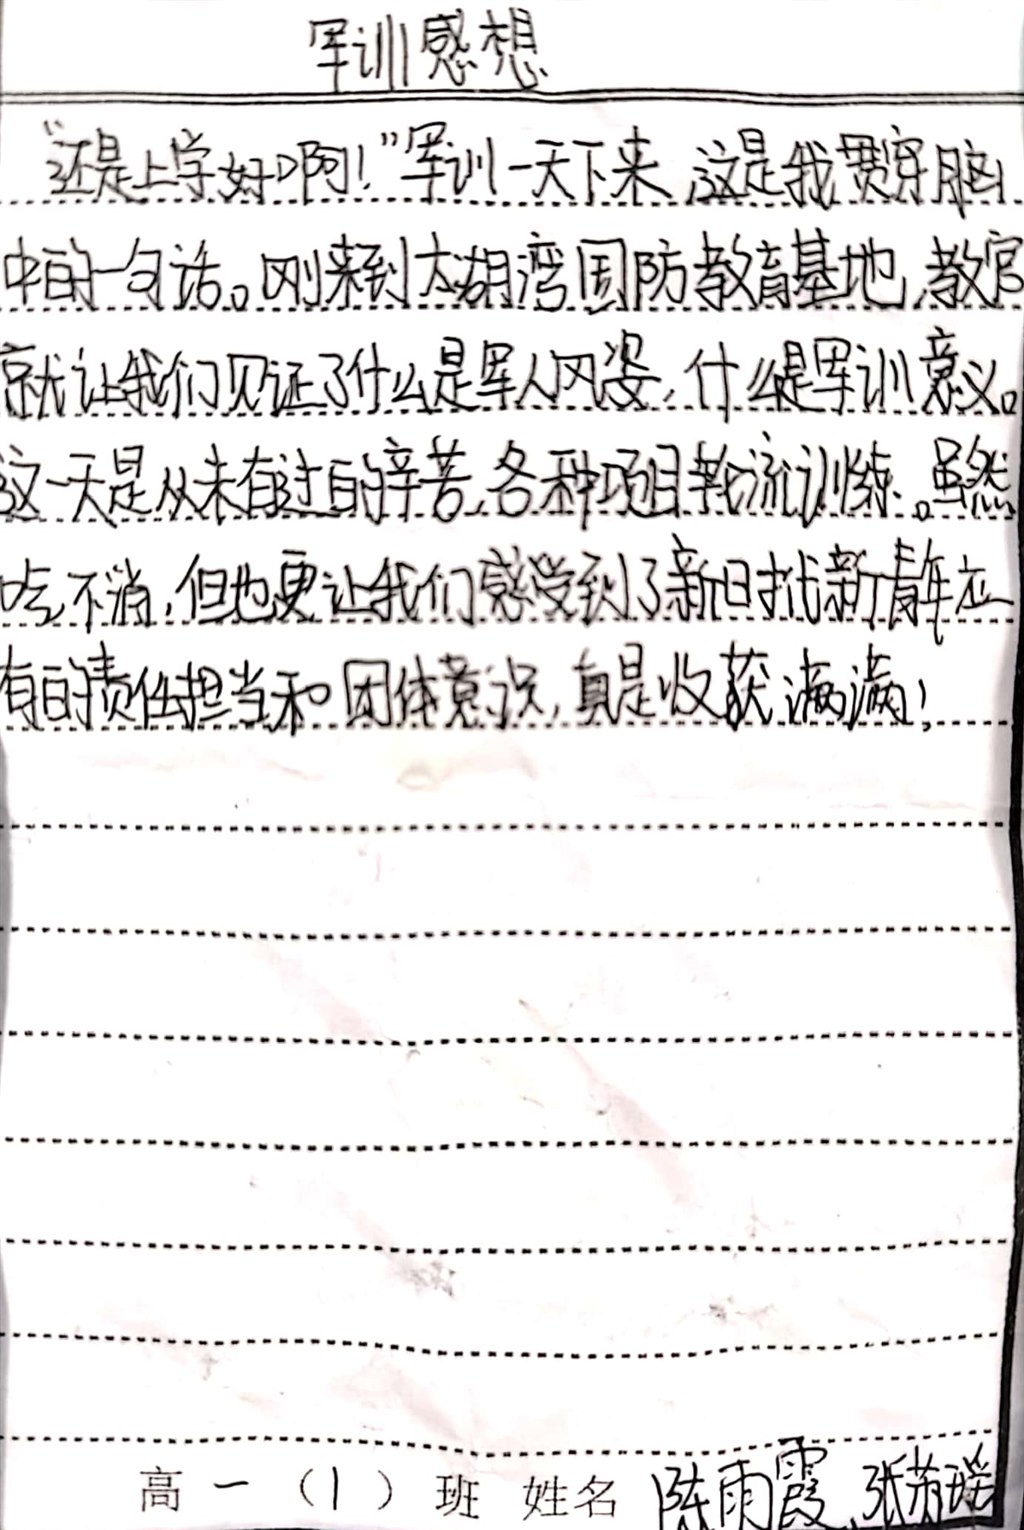 军训感想
“还是上学好啊！”军训一天下来，这是我贯穿脑
中的一句话。刚来到太湖湾国防教育基地，教官
就让我们见证了什么是军人风姿，什么是军训意义。
这一天是从未有过的辛苦，各种项目轮流训练。虽然
吃不消，但也更让我们感受到了新时代新青年应
有的责任担当和团体意识，真是收获满满！
高一（1）班 姓名 陈雨霞、张